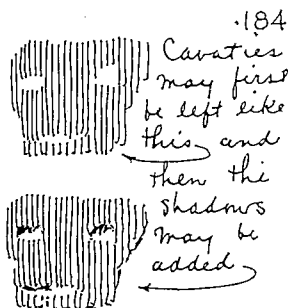 .184
Cavaties
may first
be left like
this and
then thi
shadows
may be
added